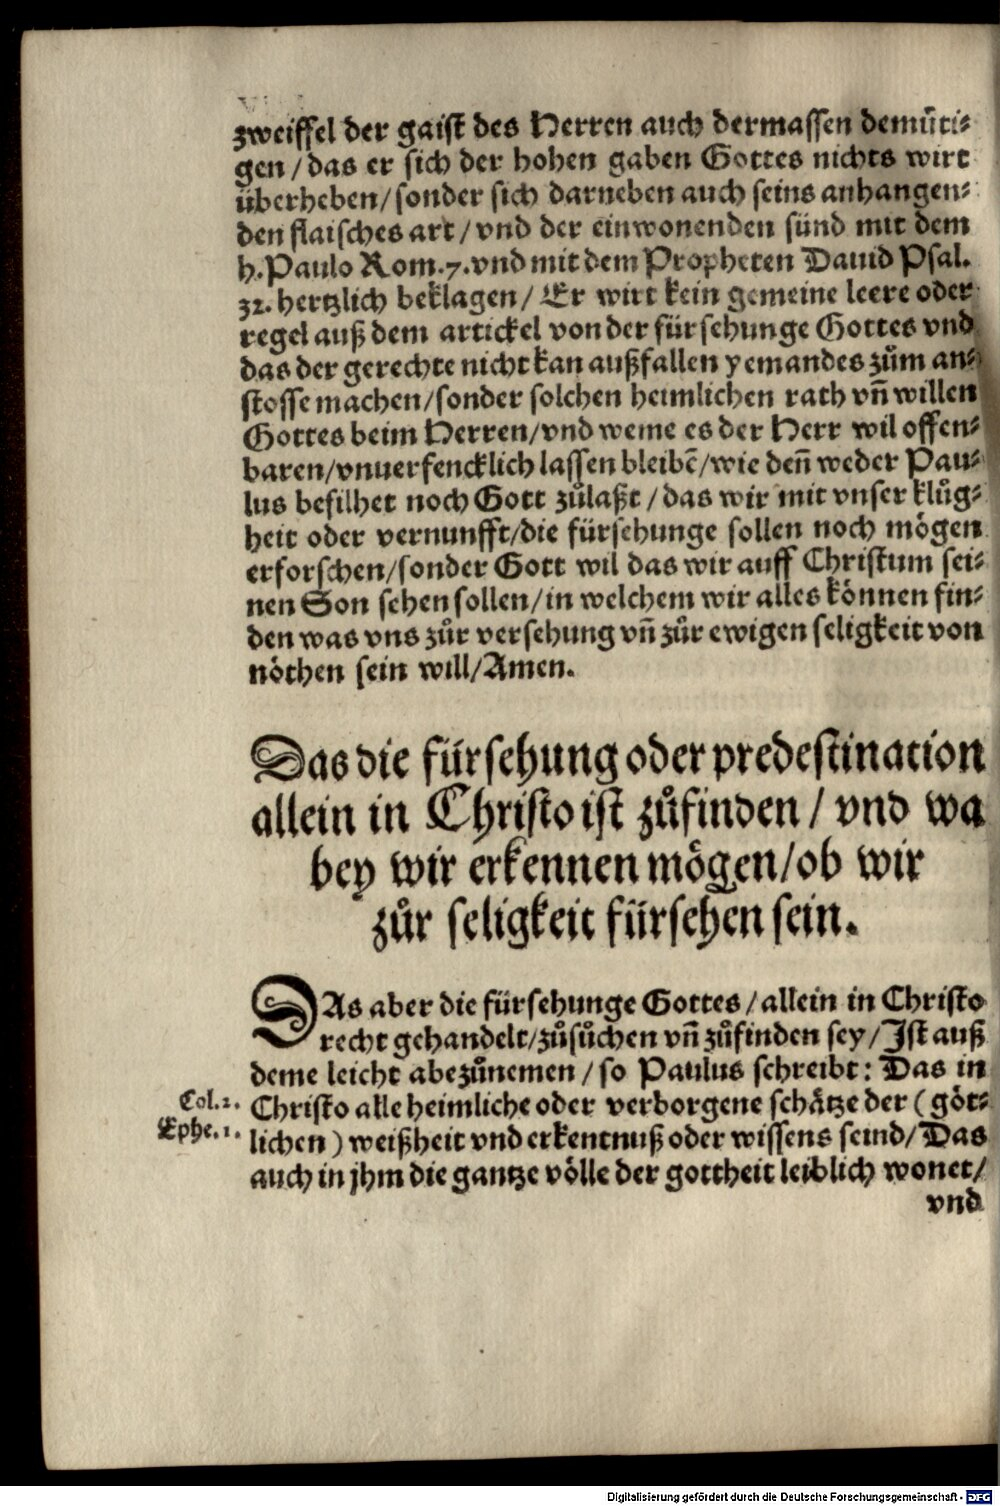 zweiffel der gaist des Herren auch dermassen demuͤti⸗
gen / das er sich der hohen gaben Gottes nichts wirt
überheben / sonder sich darneben auch seins anhangen⸗
den flaisches art / vnd der einwonenden sünd mit dem
h. Paulo Rom. 7. vnd mit dem Propheten Dauid Psal.
32. hertzlich beklagen / Er wirt kein gemeine leere oder
regel auß dem artickel von der fürsehunge Gottes vnd
das der gerechte nicht kan außfallen yemandes zům an⸗
stosse machen / sonder solchen heimlichen rath vñ willen
Gottes beim Herren / vnd weme es der Herr wil offen⸗
baren / vnuerfencklich lassen bleibẽ / wie deñ weder Pau⸗
lus befilhet noch Gott zůlaßt / das wir mit vnser klůg⸗
heit oder vernunfft / die fürsehunge sollen noch mögen
erforschen / sonder Gott wil das wir auff Christum sei⸗
nen Son sehen sollen / in welchem wir alles können fin⸗
den was vns zůr versehung vñ zůr ewigen seligkeit von
nöthen sein will / Amen.
Das die fürsehung oder predestination
allein in Christo ist zůfinden / vnd wa
bey wir erkennen mögen / ob wir
zůr seligkeit fürsehen sein.
DAs aber die fürsehunge Gottes / allein in Christo
recht gehandelt / zůsůchen vñ zůfinden sey / Ist auß
deme leicht abezůnemen / so Paulus schreibt: Das in
Col. 2. Christo alle heimliche oder verborgene schätze der ( göt⸗
Ephe. 1. lichen ) weißheit vnd erkentnuß oder wissens seind / Das
auch in jhm die gantze völle der gottheit leiblich wonet /
vnd
Digitalisierung gefördert durch die Deutsche Forschungsgemeinschaft - DFG